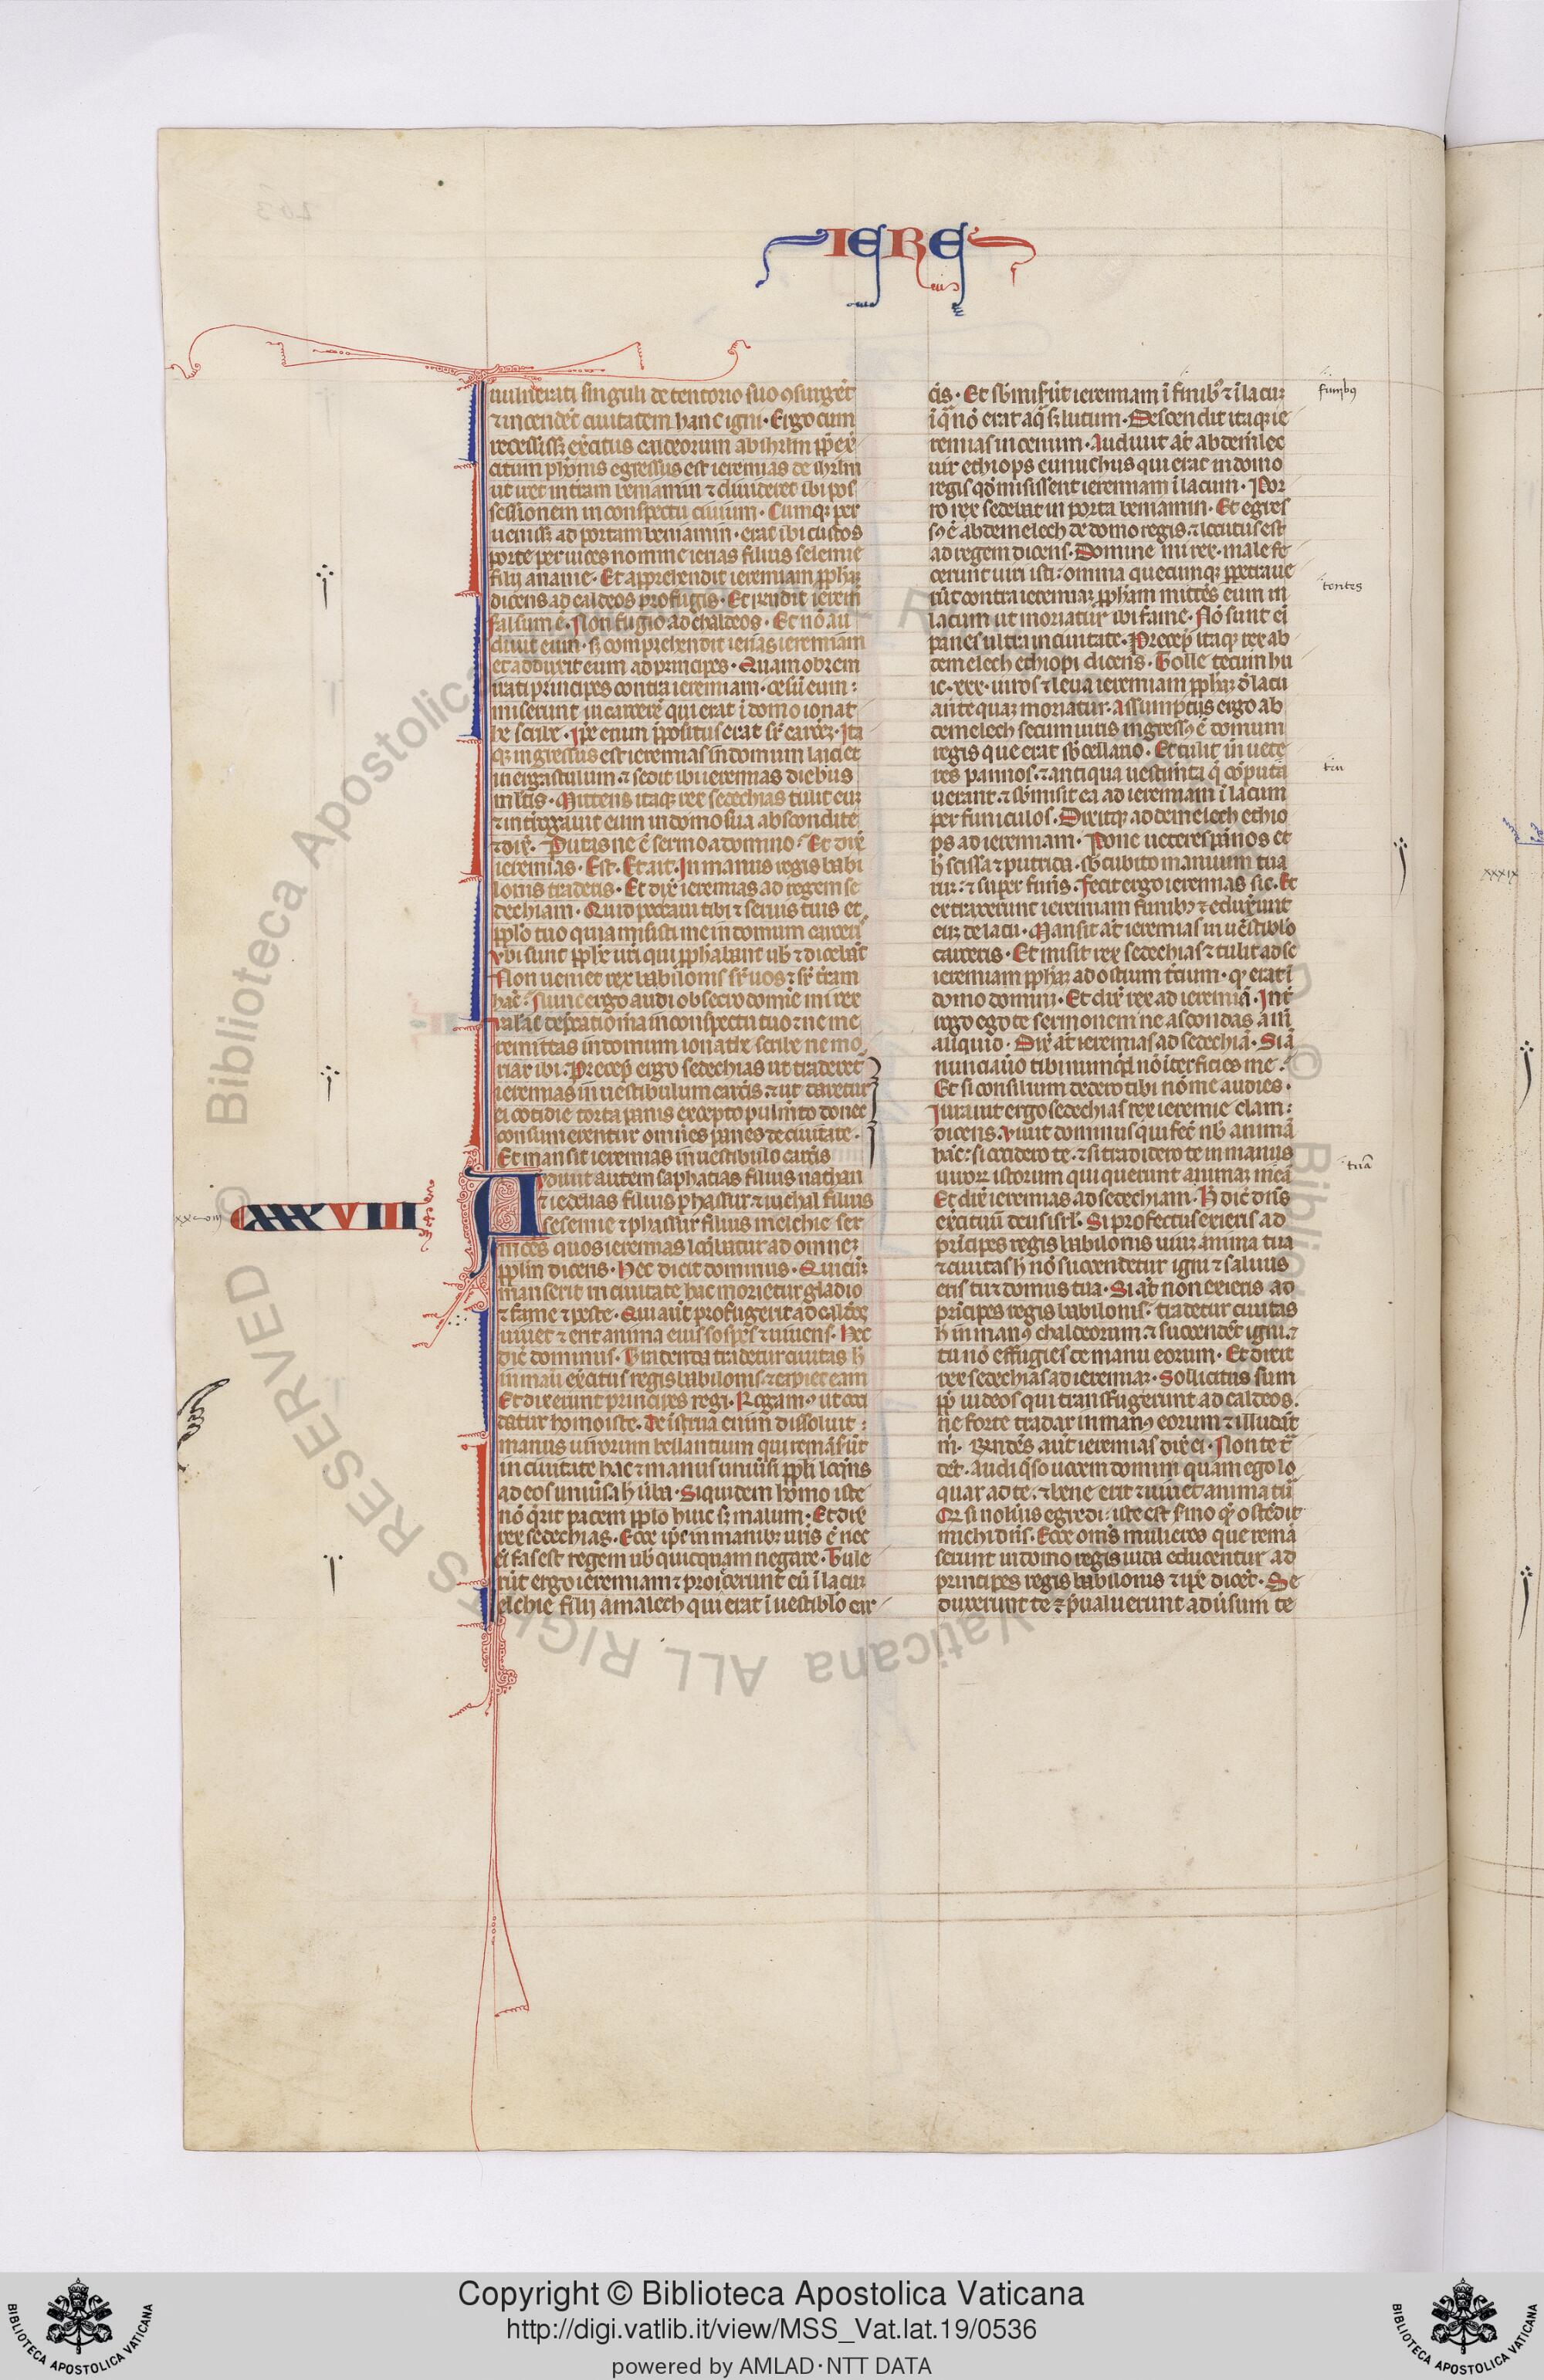 IERE
uulnerati singuli de tentorio suo ꝯsurgēt
⁊ incendēt ciuitatem hanc igni. Ergo cum
recessissꝫ exͥcitus caldeorum ab ihrlm ꝓp̄ exͥ
citum pharonis egressus est ieremias de ihrlm
ut iret in tr̄am beniamin ⁊ diuideret ibi pos
sessionem in conspectu ciuium. Cumqꝫ per
uenissꝫ ad portam beniamin. erat ibi custos
porte per uices nomine ierias filius selemie
filij ananie. Et apprehendit ieremiam ꝓph̄aꝫ
dicens ad caldeos profugis. Et rn̄dit ierem̄
falsum ē. Non fugio ad chaldeos. Et nō au
diuit eum. sꝫ comprehendit ierias ieremiam
et adduxit eum ad principes. Quam obrem
irati principes contra ieremiam. cesū eum:
miserunt in carcerē qui erat ī domo ionat
he scribe. Ip̄e enim p̄positus erat sr̄ carcēꝫ. Ita
qꝫ ingressus est ieremias in domum laci et
in ergastulum ⁊ sedit ibi ieremias diebus
ml̄tis. Mittens itaqꝫ rex sedechias tulit euꝫ
⁊ int̄rogauit eum in domo sua abscondite
⁊ dix̄. Putas ne ē sermo a domino. Et dix̄
ieremias. Est. Et ait. In manus regis babi
lonis traderis. Et dix̄ ieremias ad regem se
dechiam. Quid peccaui tibi ⁊ seruis tuis et
ꝓplo tuo quia misisti me in domum carceris
Vbi sunt ꝓph̄e ur̄i qui ꝓph̄abant uob̄ ⁊ dicebāt
Non ueniet rex babilonis sr̄ uos ⁊ sr̄ tr̄am
hāc. Nunc ergo audi obsecro domīe mi rex
Valeat dep̄catio m̄a in conspectu tuo ⁊ ne me
remittas in domum ionathe scribe ne mo
riar ibi. Precep̄ ergo sedechias ut traderet̄
ieremias in uestibulum carcīs. ⁊ ut daretur
ei cotidie torta panis excepto pulm̄to donec
consumerentur omnes panes de ciuitate.
Et mansit ieremias in uestibulo carcīs
CXXXVIII
Audiuit autem saphatias filius nathan
⁊ iedelias filius phassur ⁊ iuchal filius
selemie ⁊ phassur filius melchie ser
mones quos ieremias loq̄batur ad omneꝫ
ꝓplm dicens. Hec dicit dominus. Quicūꝫ
manserit in ciuitate hac morietur gladio
⁊ fame ⁊ peste. Qui aūt profugerit ad caldeos
uiuet ⁊ erit anima eius sospes ⁊ uiuens. Hec
dic̄ dominus. Tradenda tradetur ciuitas h̄
in manū exͥcitus regis babilonis. ⁊ capiet eam
Et dixerunt principes regi. Rogamꝰ ut occi
datur homo iste. De īstria enim dissoluit:
manus uirorum bellantium qui remāsūt
in ciuitate hac ⁊ manus uniūsi ꝓpli loq̄ns
ad eos uniūsa h̄ ūba. Siquidem homo iste
nō q̄rit pacem ꝓplo huic sꝫ malum. Et dix̄
rex sedechias. Ecce ip̄e in manibꝫ ur̄is ē nec
ei fas est regem uob̄ quicquam negare. Tule
rūt ergo ieremiam ⁊ proiecerunt eū ī lacuꝫ
elchie filij amalech qui erat ī uestiblo car
cīs. Et sb̄miserūt ieremiam ī funibꝰ ⁊ ī lacuꝫ
ī q̄ nō erat aq̄ sꝫ lutum. Descendit itaqꝫ ie
remias in cenum. Audiuit at̄ abdemelec
uir ethiops eunuchus qui erat in domo
regis qd̄ misissent ieremiam ī lacum. Por
ro rex sedebat in porta beniamin. Et egres
sꝰ ē abdemelech de domo regis. ⁊ locutus est
ad regem dicens. Domine mi rex. male fe
cerunt uiri isti: omnia quecunqꝫ ꝑpetraue
rūt contra ieremiaꝫ ꝓph̄am mittēs eum in
lacum ut moriatur ibi fame. Nō sunt ei
panes ultra in ciuitate. Precep̄ itaqꝫ rex ab
demelech ethiopi dicens. Tolle tecum hi
ic. xxx. uiros ⁊ leua ieremiam ꝓph̄aꝫ d̄ lacu
antequaꝫ moriatur. Assumptis ergo ab
demelech secum uiris ingressꝰ ē domum
regis que erat sb̄ cellario. Et tulit in uete
res pannos. ⁊ antiqua uestim̄ta q̄ cōputa
uerant. ⁊ sb̄misit ea ad ieremiam ī lacum
per funiculos. Dixitqꝫ abdemelech ethio
ps ad ieremiam. Pone ueteres pānos et
h̄ scissa ⁊ putrida. sb̄ cubito manuum tua
rū: ⁊ super funis. Fecit ergo ieremias sic. Et
extraxerunt ieremiam funibꝫ ⁊ eduxerunt
euꝫ de lacu. Mansit at̄ ieremias in uestiblo
carceris. Et misit rex sedechias ⁊ tulit ad se
ieremiam ꝓph̄aꝫ ad ostium tercium. qd̄ erat ī
domo domini. Et dix̄ rex ad ieremiā. Int̄
rogo ego te sermonem ne ascondas a me
aliquid. Dix̄ at̄ ieremias ad sedechiā. Si ā
nunciauero tibi nunqd̄ nō īterficies me:
Et si consilium dedero tibi nō me audies.
Iurauit ergo sedechias rex ieremie clam:
dicens. Viuit dominus qui fec̄ nob̄ animā
hāc: si occidero te. ⁊ si tradidero te in manus
uiroꝝ istorum qui querunt animaꝫ meā
Et dix̄ ieremias ad sedechiam. H̄ dic̄ dn̄s
exercituū deus isrl. Si profectus exieris ad
principes regis babilonis uiuꝫ anima tua
⁊ ciuitas h̄ nō succendetur igni ⁊ saluus
eris tu ⁊ domus tua. Si at̄ non exieris ad
principes regis babilonis. tradetur ciuitas
h̄ in manꝰ chaldeorum. ⁊ succendet̄ igni. ⁊
tu nō effugies de manu eorum. Et dixit
rex sedechias ad ieremiaꝫ. Sollicitus sum
ꝓp̄ iudeos qui transfugerunt ad caldeos.
ne forte tradar in manꝰ eorum ⁊ illudāt
m̄. Rn̄dēs aūt ieremias dix̄ ei. Non te t̄
det. Audi q̄so uocem domini quam ego lo
quar ad te. ⁊ bene erit ⁊ uiuet anima tū
Qr si nolūis egredi. iste est s̄mo qd̄ ostēdit
michi dn̄s. Ecce om̄s mulieres que remā
serunt in domo regis iuda educentur ad
principes regis babilonis ⁊ ip̄e dicet̄. Se
duxerunt te ⁊ p̄ualuerunt aduersum te
funibꝰ
tentes
tua
xxxix
Copyright © Biblioteca Apostolica Vaticana
http://digi.vatlib.it/view/MSS_Vat.lat.19/0536
powered by AMLAD·NTT DATA
BIBLIOTECA APOSTOLICA VATICANA
BIBLIOTECA APOSTOLICA VATICANA
© Biblioteca Apostolica Vaticana ALL RIGHTS RESERVED